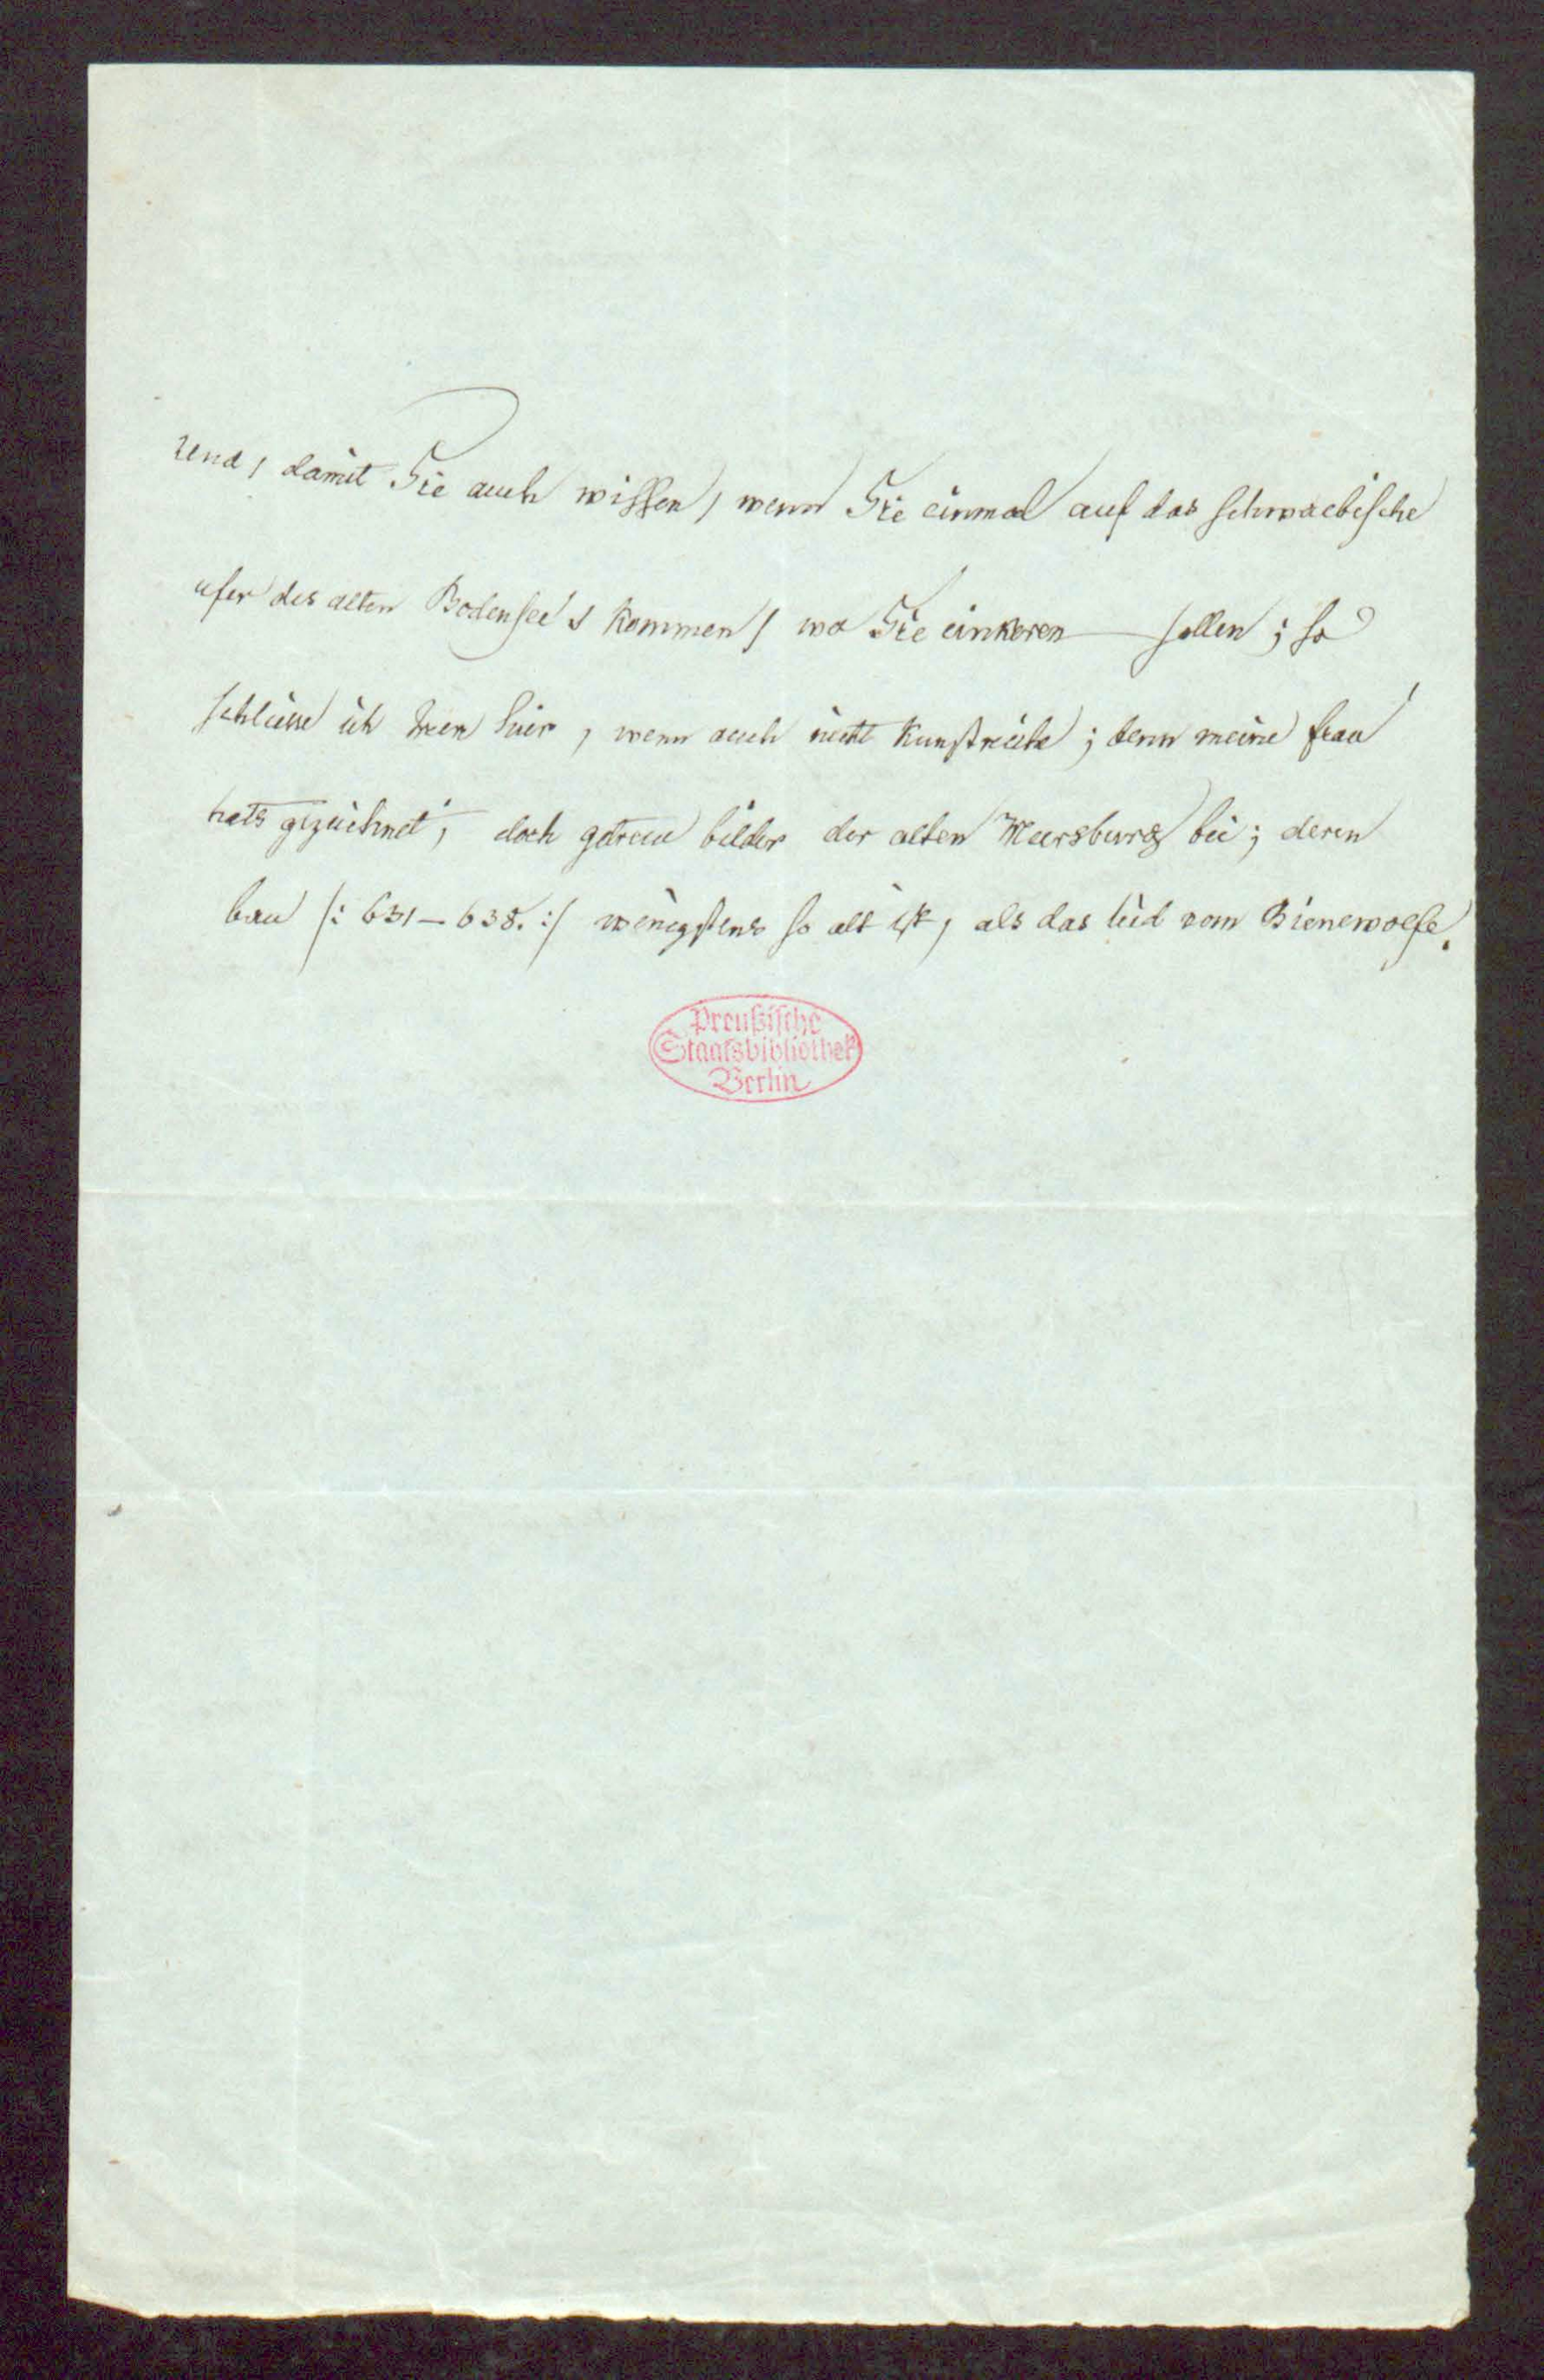 Und, damit Sie auch wissen, wenn Sie einmal auf das schwaebische
ufer des alten Bodensee's kommen, wo Sie einkeren sollen; so
schliesse ich Inen hier, wenn auch nicht kunstreiche; denn meine frau
hats gezeichnet, doch getreue bilder der alten Meersburg bei; deren
bau /: 631–638. :/ wenigstens so alt ist, als das lied vom Bienewolfe.
Preußische
Staatsbibliothek
Berlin